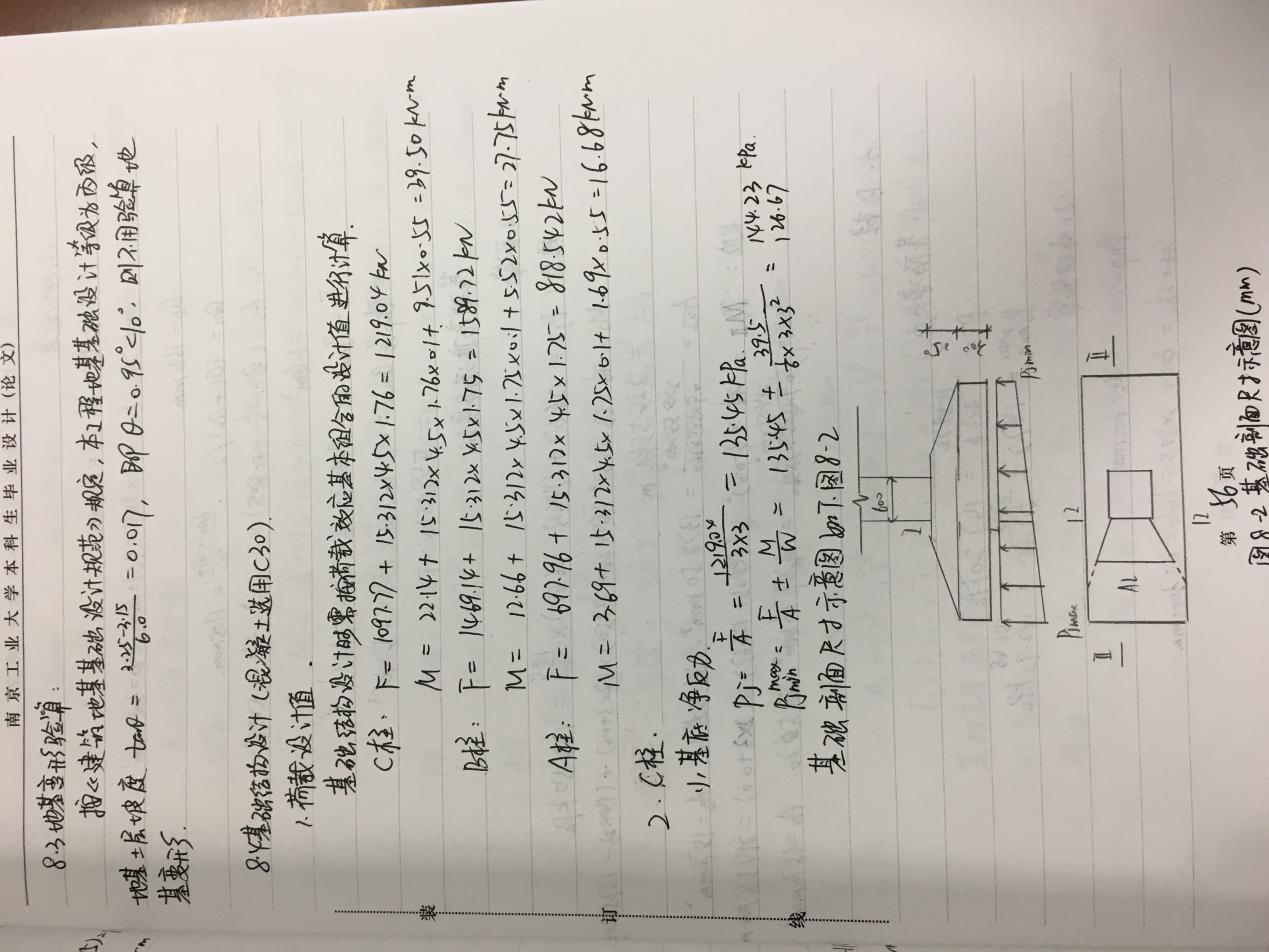 南京工业大学本科生毕业设计(论文)
8.3 地基变形验算:
按《建筑地基基础设计规范》规定,本工程地基基础设计等级为丙级,
地基土层坡度 tanθ = (3.25-3.15)/6.0 = 0.017, 即θ=0.95°<10°, 则不用验算地
基变形.
8.4 基础结构设计(混凝土选用C30).
1.荷载设计值.
基础结构设计时需按荷载效应基本组合的设计值进行计算.
C柱: F=1097.77+15.312×4.5×1.76=1219.04kN
M=22.14+15.312×4.5×1.76×0.1+9.51×0.55=39.50kN·m
B柱: F=1469.14+15.312×4.5×1.75=1589.72kN
M=12.66+15.312×4.5×1.75×0.1+5.52×0.55=27.75kN·m
A柱: F=697.96+15.312×4.5×1.75=818.542kN
M=3.69+15.312×4.5×1.75×0.1+1.69×0.55=16.68kN·m
2.C柱.
(1)基底净反力.
Pj=F/A=1219.04/3×3=135.45kPa.
Pjmax
Pjmin=F/A±M/W=135.45±39.5/(1/6×3×3²)=144.23
126.67 kPa.
基础剖面尺寸示意图如下图8-2
600
I
Pjmax
Pjmin
II
A1
II
12
12
第56页
图8-2 基础剖面尺寸示意图(mm)
装
订
线